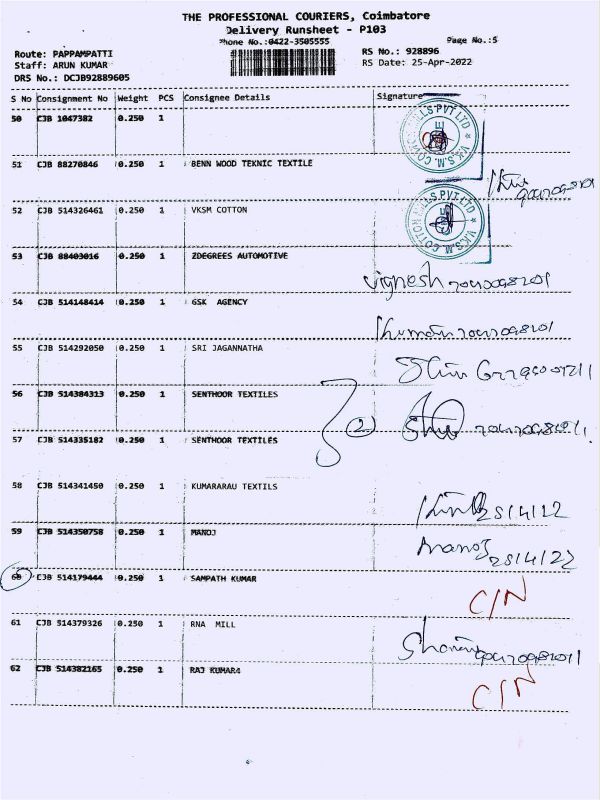 THE PROFESSIONAL COURIERS, Coimbatore
Delivery Runsheet - P103
Phone No.:0422-3505555 Page No.:5
Route: PAPPAMPATTI RS No.: 928896
Staff: ARUN KUMAR RS Date: 25-Apr-2022
DRS No.: DCJB92889605
S No Consignment No Weight PCS Consignee Details Signature
50 CJB 1047382 0.250 1
51 CJB 88270846 0.250 1 BENN WOOD TEKNIC TEXTILE
52 CJB 514326461 0.250 1 VKSM COTTON
53 CJB 88403016 0.250 1 ZDEGREES AUTOMOTIVE
Vignesh
54 CJB 514148414 0.250 1 GSK AGENCY
55 CJB 514292050 0.250 1 SRI JAGANNATHA
56 CJB 514384313 0.250 1 SENTHOOR TEXTILES
2
57 CJB 514335182 0.250 1 SENTHOOR TEXTILES
58 CJB 514341450 0.250 1 KUMARARAU TEXTILS
25/4/22
59 CJB 514350758 0.250 1 MANOJ
Manoj 25/4/22
60 CJB 514179444 0.250 1 SAMPATH KUMAR
C/N
61 CJB 514379326 0.250 1 RNA MILL
62 CJB 514382165 0.250 1 RAJ KUMAR4
C/N